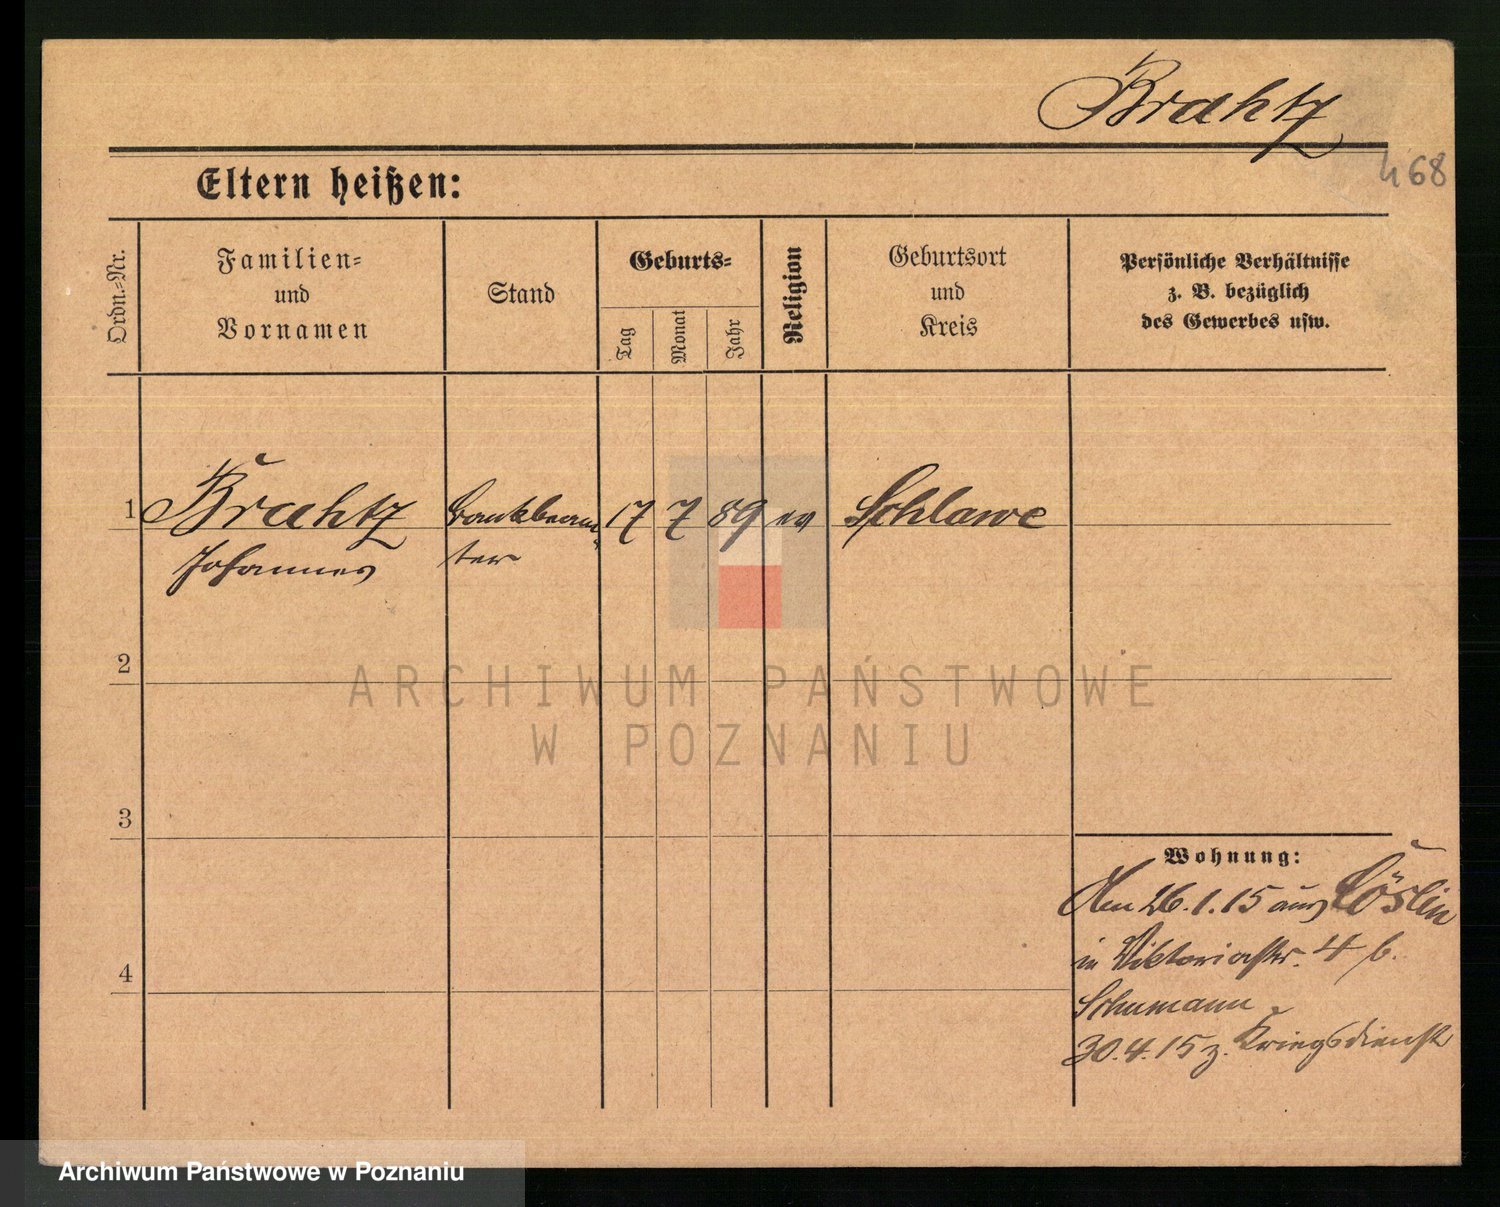 Brahtz
468
Eltern heißen:
Ordn.-Nr.
Familien-
und
Vornamen
Stand
Geburts-
Tag
Monat
Jahr
Religion
Geburtsort
und
Kreis
Persönliche Verhältnisse
z. B. bezüglich
des Gewerbes usw.
1 Brahtz Bankbeam- 17 7 89 ev Schlawe
Johannes ter
2
3
4
Wohnung:
Am 26.1.15 aus Cöslin
in Viktoriastr. 4 b.
Schumann
30.4.15 z. Kriegsdienst
ARCHIWUM PAŃSTWOWE
W POZNANIU
Archiwum Państwowe w Poznaniu